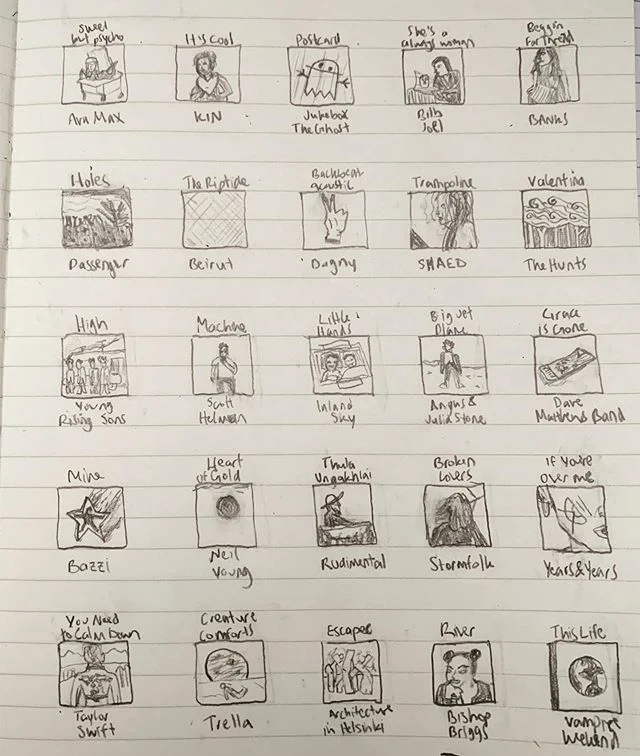 Sweet
but psycho
Ava Max
It's Cool
KIN
Postcard
Jukebox
The Ghost
She's a
always woman
Billy
Joel
Beggin
For Thread
BANKS
Holes
Passenger
The Riptide
Beirut
Backbeat
acoustic
Dagny
Trampoline
SHAED
Valentina
The Hunts
High
Young
Rising Sons
Machine
Scott
Helman
Little
Hands
Inland
Sky
Big Jet
Plane
Angus &
Julia Stone
Grace
is Gone
Dave
Matthews Band
Mine
Bazzi
Heart
of Gold
Neil
Young
Thula
Ungakhlai
Rudimental
Broken
Lovers
Stormfolk
if You're
over me
Years&Years
You Need
to Calm Down
Taylor
Swift
Creature
Comforts
Trella
Escapee
Architecture
in Helsinki
River
Bishop
Briggs
This Life
Vampire
Weekend